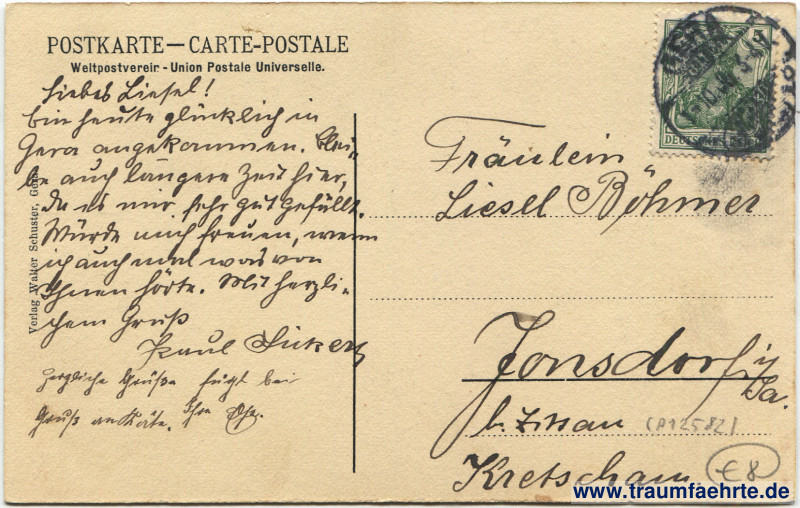 POSTKARTE — CARTE-POSTALE
Weltpostverein - Union Postale Universelle.
Liebes Liesel!
Bin heute glücklich in
Gera angekommen. Blei-
be auch längere Zeit hier,
da es mir sehr gut gefällt.
Würde mich freuen, wenn
ich auch mal was von
Ihnen hörte. Mit herzli-
chem Gruß
Paul
herzliche Grüße fügt bei
Gruß an Käte. Ihre
Verlag Walter Schuster, Gera
GERA
DEUTSCHES REICH
Fräulein
Liesel Böhmer
Jonsdorf i/
Sa.
b. Zittau
(A12582)
Kretscham
€8
www.traumfaehrte.de